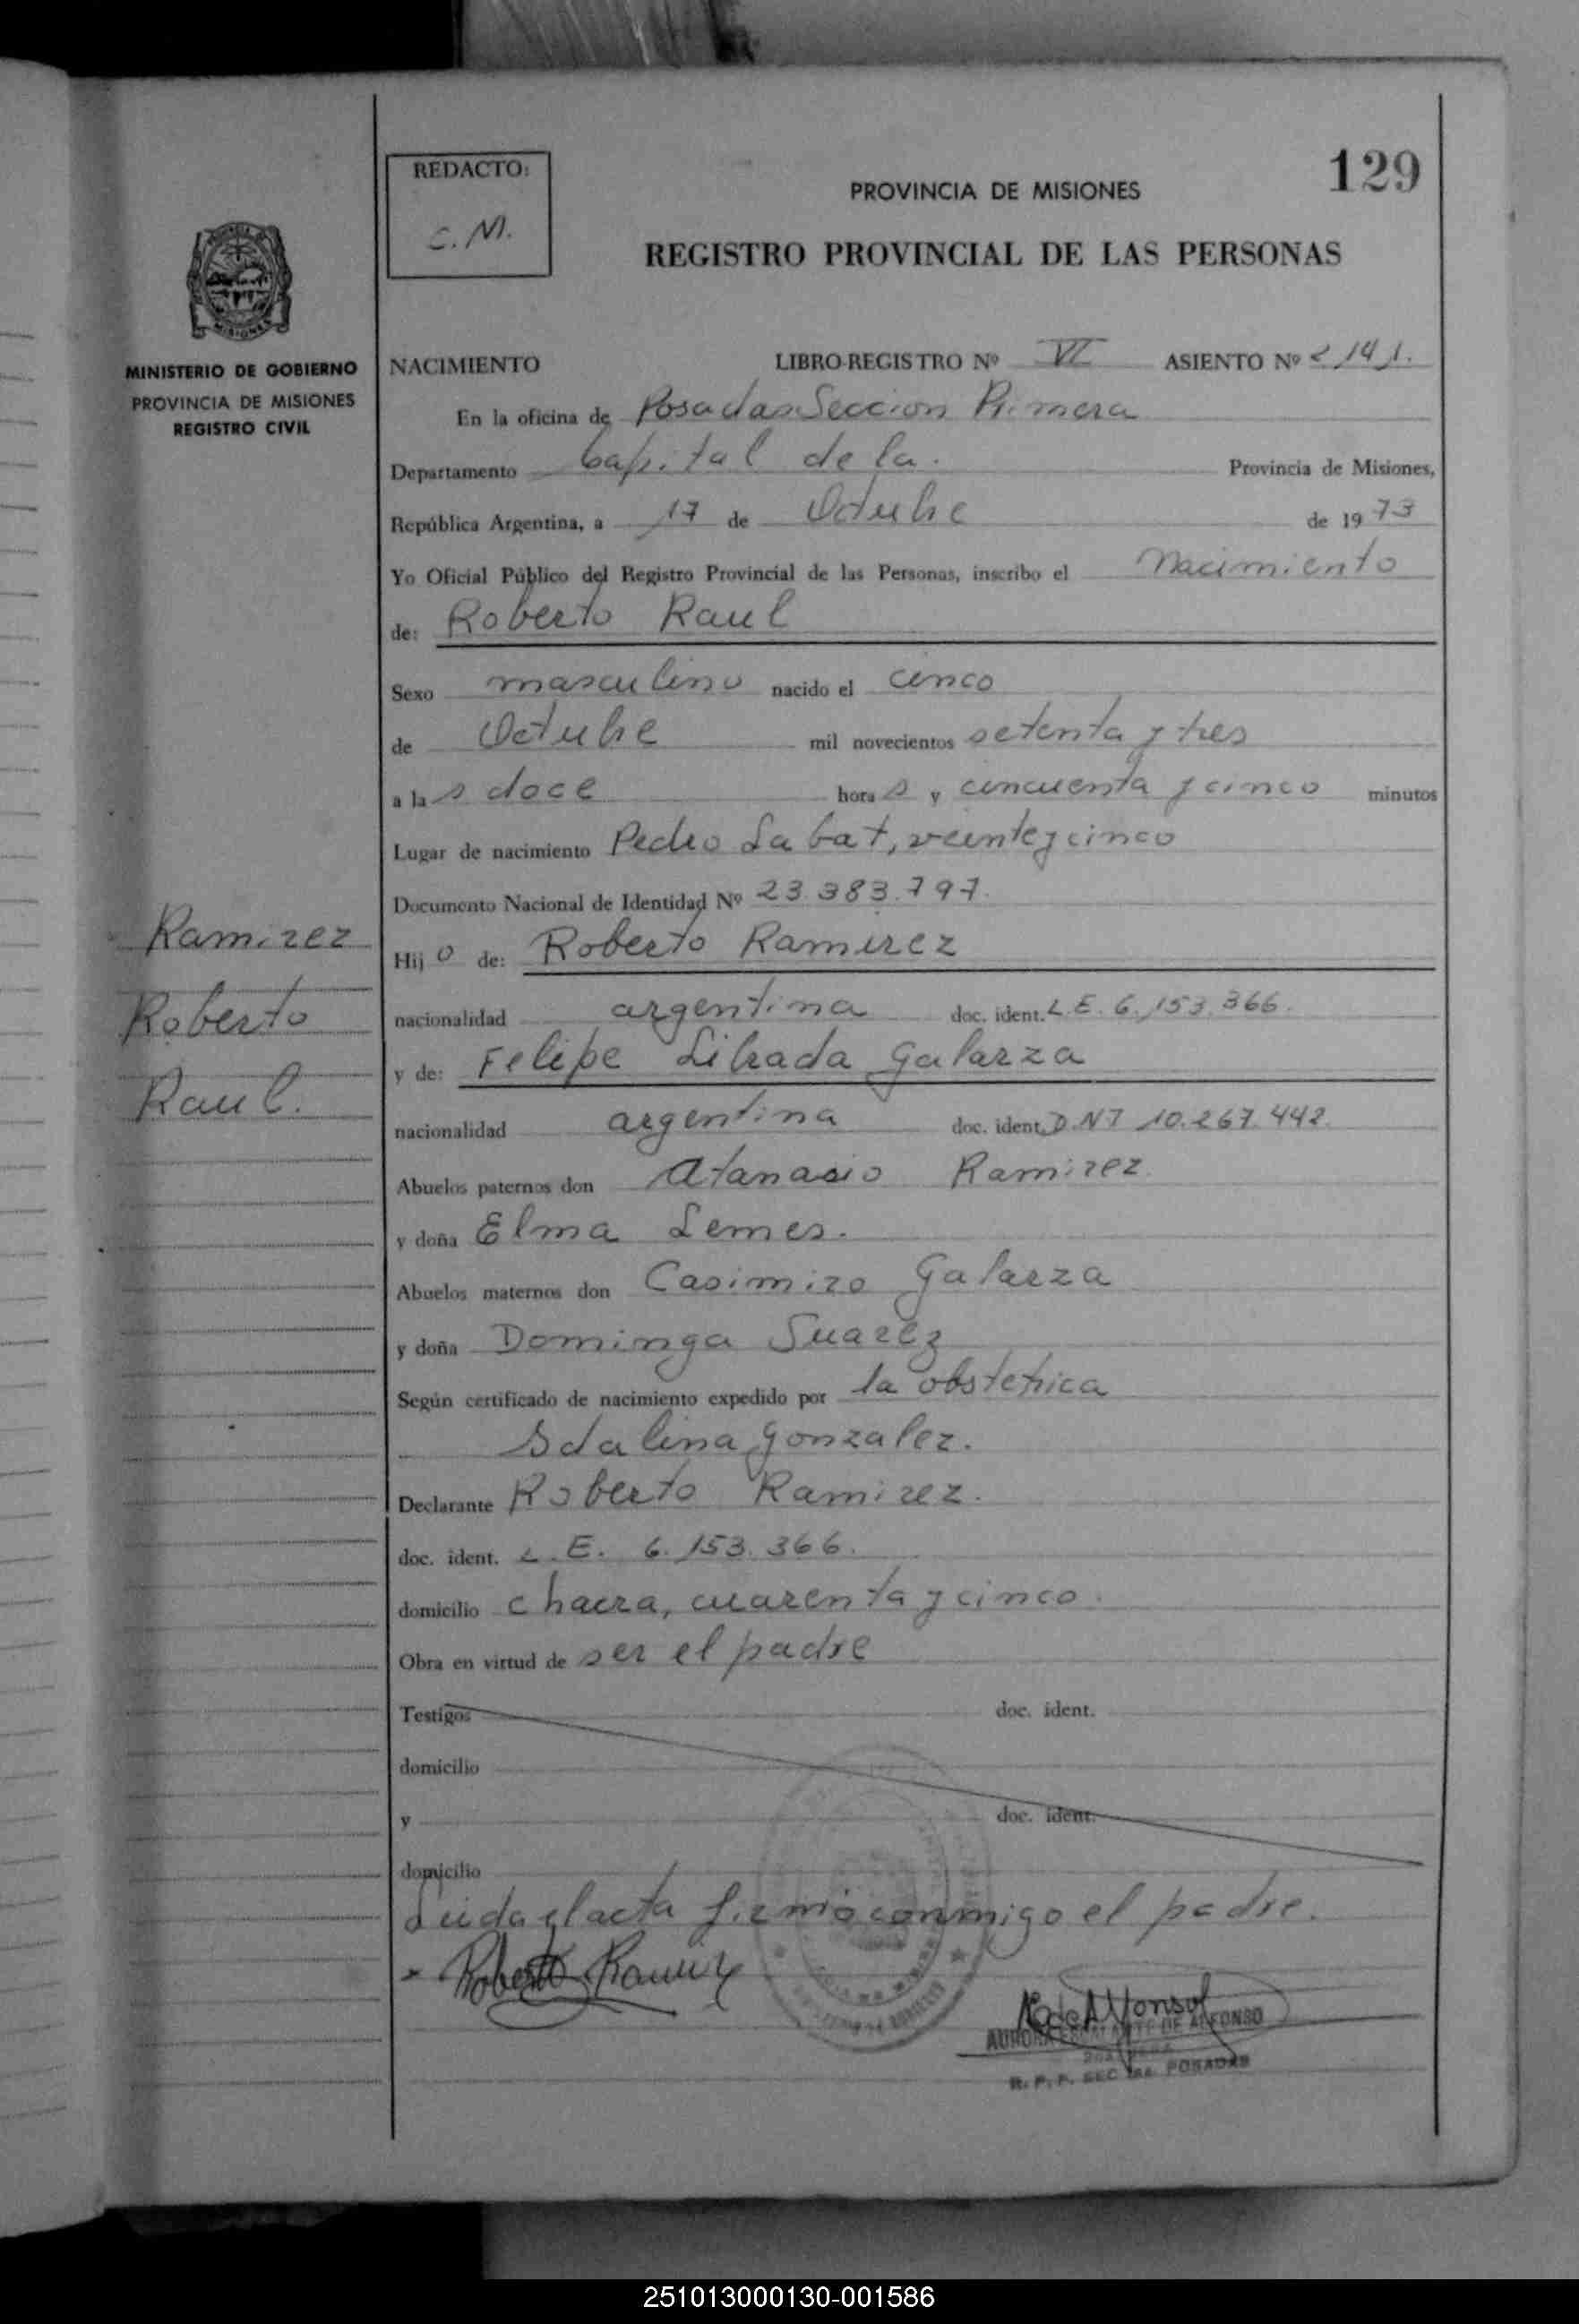 129
REDACTO:
C. M.
PROVINCIA DE MISIONES
REGISTRO PROVINCIAL DE LAS PERSONAS
MISIONES
MINISTERIO DE GOBIERNO
PROVINCIA DE MISIONES
REGISTRO CIVIL
NACIMIENTO LIBRO-REGISTRO Nº VI ASIENTO Nº 2141.
En la oficina de Posadas Seccion Primera
Departamento Capital de la. Provincia de Misiones,
República Argentina, a 17 de Octubre de 1973
Yo Oficial Público del Registro Provincial de las Personas, inscribo el Nacimiento
de: Roberto Raul
Sexo masculino nacido el cinco
de Octubre mil novecientos setenta y tres
a las doce horas y cincuenta y cinco minutos
Lugar de nacimiento Pedro Labat, veinte y cinco
Documento Nacional de Identidad Nº 23.383.797.
Ramirez
Roberto
Raul.
Hijo de: Roberto Ramirez
nacionalidad argentina doc. ident. L.E. 6.153.366.
y de: Felipe Librada Galarza
nacionalidad argentina doc. ident. D.NI 10.267.442.
Abuelos paternos don Atanasio Ramirez.
y doña Elma Lemes.
Abuelos maternos don Casimiro Galarza
y doña Dominga Suarez
Según certificado de nacimiento expedido por la obstetrica
Idalina Gonzalez.
Declarante Roberto Ramirez.
doc. ident. L.E. 6.153.366.
domicilio chacra, cuarenta y cinco.
Obra en virtud de ser el padre
Testigos doc. ident.
domicilio
y doc. ident.
domicilio
Leida el acta firmó conmigo el padre.
Roberto Ramirez
AURORA DE ALFONSO
R. P. P. SEC 1ra. POSADAS
251013000130-001586